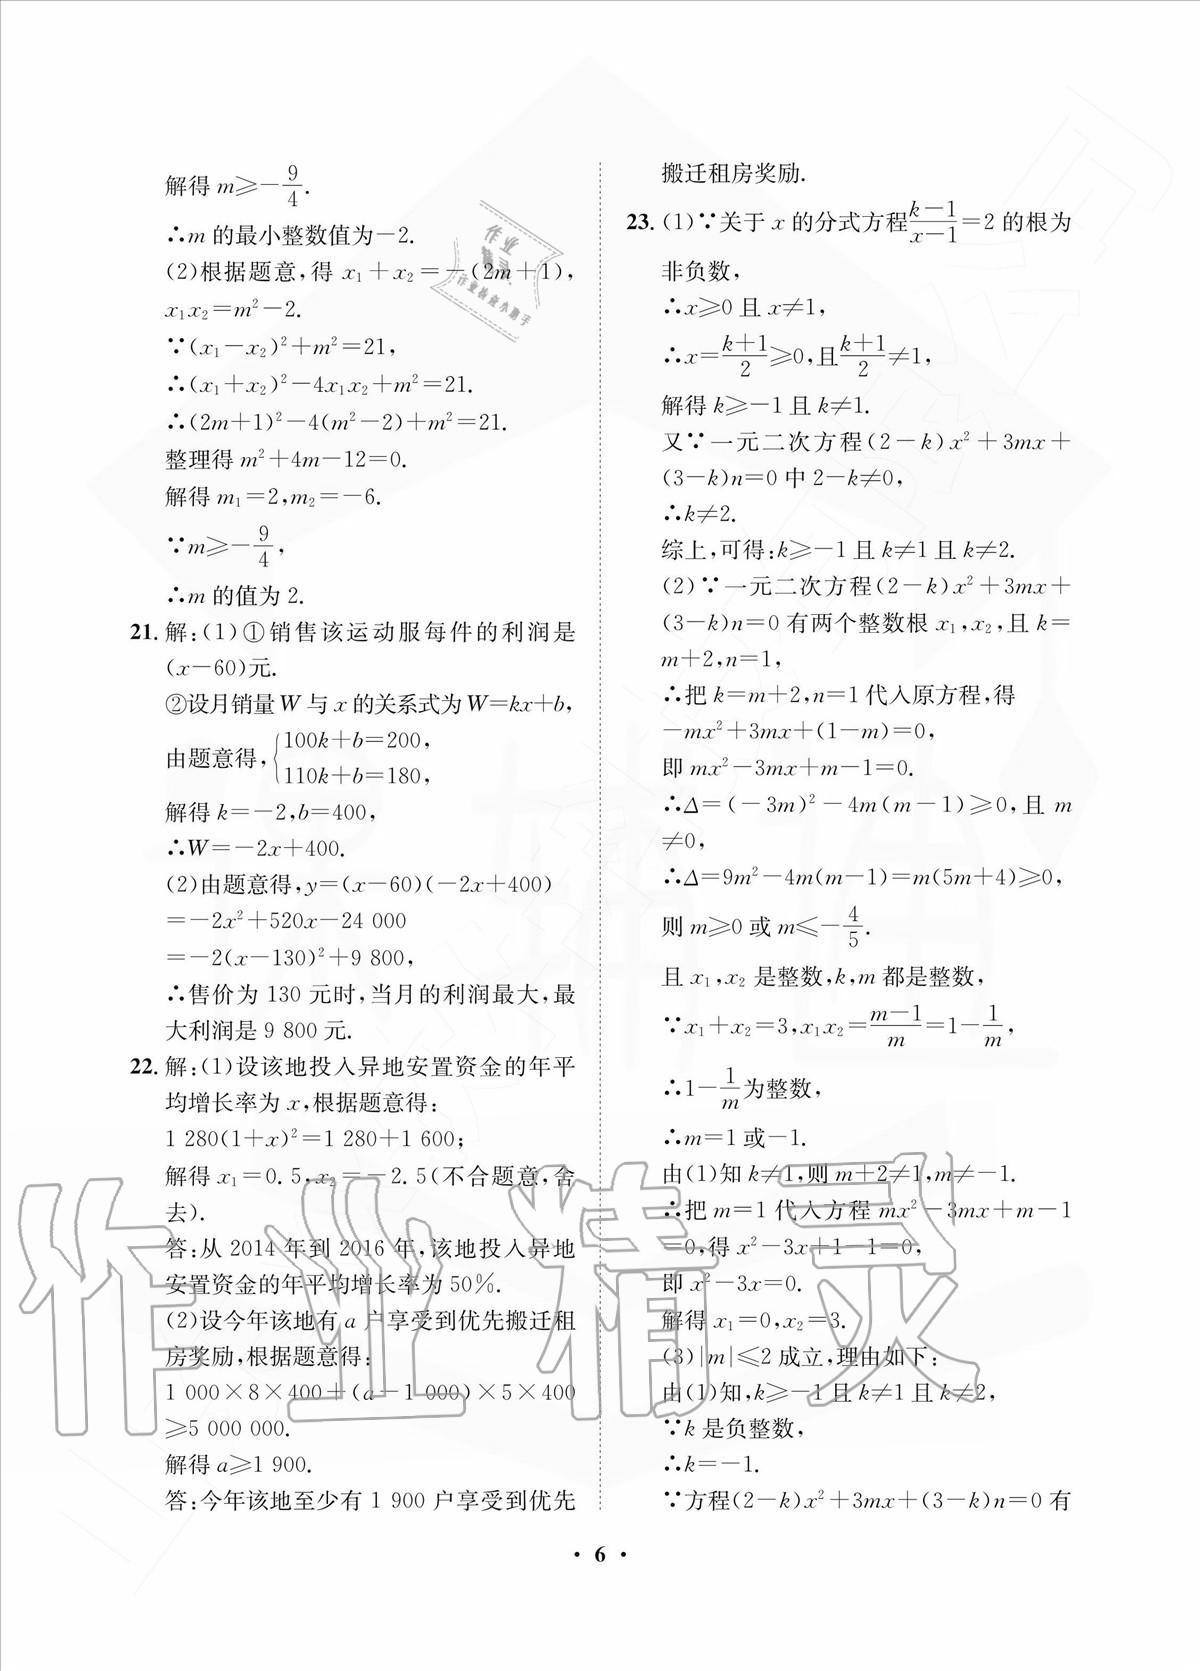 解得 m≥-9/4.
∴m 的最小整数值为-2.
(2)根据题意,得 x₁+x₂=-(2m+1),
x₁x₂=m²-2.
∵(x₁-x₂)²+m²=21,
∴(x₁+x₂)²-4x₁x₂+m²=21.
∴(2m+1)²-4(m²-2)+m²=21.
整理得 m²+4m-12=0.
解得 m₁=2,m₂=-6.
∵m≥-9/4,
∴m 的值为 2.
21. 解:(1)①销售该运动服每件的利润是
(x-60)元.
②设月销量 W 与 x 的关系式为 W=kx+b,
由题意得,{100k+b=200,
110k+b=180,
解得 k=-2,b=400,
∴W=-2x+400.
(2)由题意得,y=(x-60)(-2x+400)
=-2x²+520x-24 000
=-2(x-130)²+9 800,
∴售价为 130 元时,当月的利润最大,最
大利润是 9 800 元.
22. 解:(1)设该地投入异地安置资金的年平
均增长率为 x,根据题意得:
1 280(1+x)²=1 280+1 600;
解得 x₁=0.5,x₂=-2.5(不合题意,舍
去).
答:从 2014 年到 2016 年,该地投入异地
安置资金的年平均增长率为 50%.
(2)设今年该地有 a 户享受到优先搬迁租
房奖励,根据题意得:
1 000×8×400+(a-1 000)×5×400
≥5 000 000.
解得 a≥1 900.
答:今年该地至少有 1 900 户享受到优先
搬迁租房奖励.
23. (1)∵关于 x 的分式方程(k-1)/(x-1)=2 的根为
非负数,
∴x≥0 且 x≠1,
∴x=(k+1)/2≥0,且(k+1)/2≠1,
解得 k≥-1 且 k≠1.
又∵一元二次方程(2-k)x²+3mx+
(3-k)n=0 中 2-k≠0,
∴k≠2.
综上,可得:k≥-1 且 k≠1 且 k≠2.
(2)∵一元二次方程(2-k)x²+3mx+
(3-k)n=0 有两个整数根 x₁,x₂,且 k=
m+2,n=1,
∴把 k=m+2,n=1 代入原方程,得
-mx²+3mx+(1-m)=0,
即 mx²-3mx+m-1=0.
∴Δ=(-3m)²-4m(m-1)≥0,且 m
≠0,
∴Δ=9m²-4m(m-1)=m(5m+4)≥0,
则 m≥0 或 m≤-4/5.
且 x₁,x₂ 是整数,k,m 都是整数,
∵x₁+x₂=3,x₁x₂=(m-1)/m=1-1/m,
∴1-1/m为整数,
∴m=1 或-1.
由(1)知 k≠1,则 m+2≠1,m≠-1.
∴把 m=1 代入方程 mx²-3mx+m-1
=0,得 x²-3x+1-1=0,
即 x²-3x=0.
解得 x₁=0,x₂=3.
(3)|m|≤2 成立,理由如下:
由(1)知,k≥-1 且 k≠1 且 k≠2,
∵k 是负整数,
∴k=-1.
∵方程(2-k)x²+3mx+(3-k)n=0 有
· 6 ·
作业精灵
作业
作业检查小助手